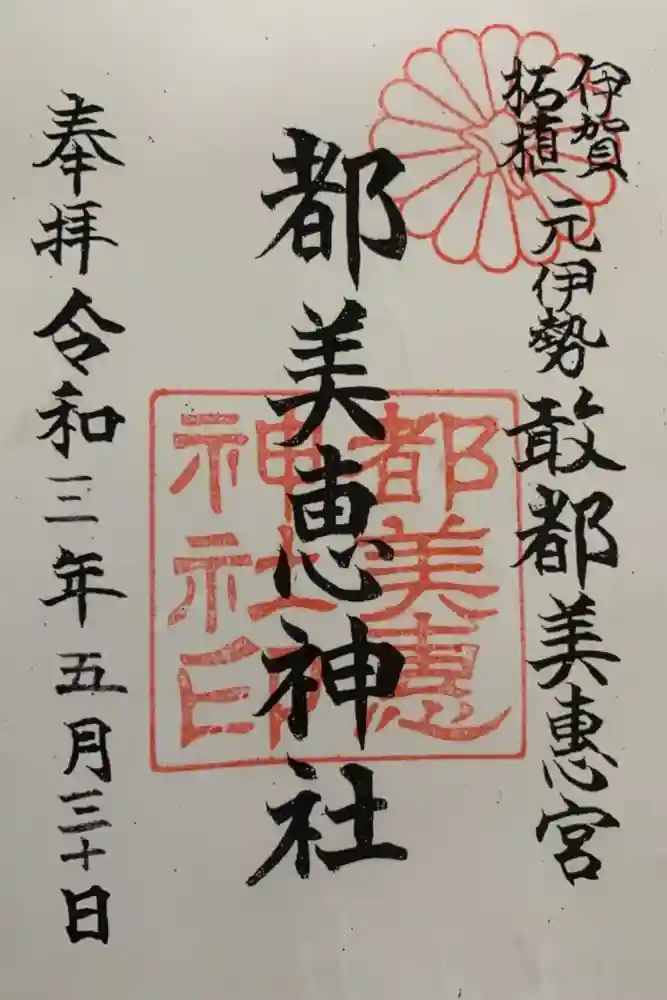 伊賀
柘植
元伊勢 敢都美恵宮
都美恵神社
都美恵
神社印
奉拝 令和三年五月三十日